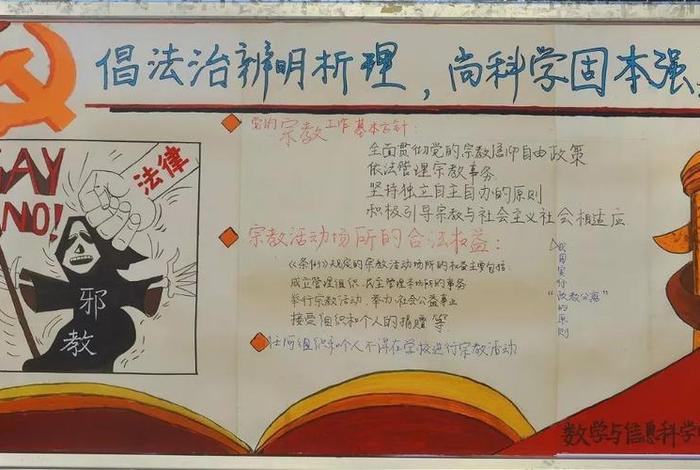 倡法治辨明析理，尚科学固本强
SAY
NO!
法律
邪教
党的宗教工作基本方针：
全面贯彻党的宗教信仰自由政策
依法管理宗教事务
坚持独立自主自办的原则
积极引导宗教与社会主义社会相适应
宗教活动场所的合法权益：
《条例》规定的宗教活动场所的权益主要包括
成立管理组织、民主管理本场所的事务
举行宗教活动、举办社会公益事业
接受组织和个人的捐赠等
我国实行
“政教分离”
的原则
任何组织和个人不得在学校进行宗教活动
数学与信息科学